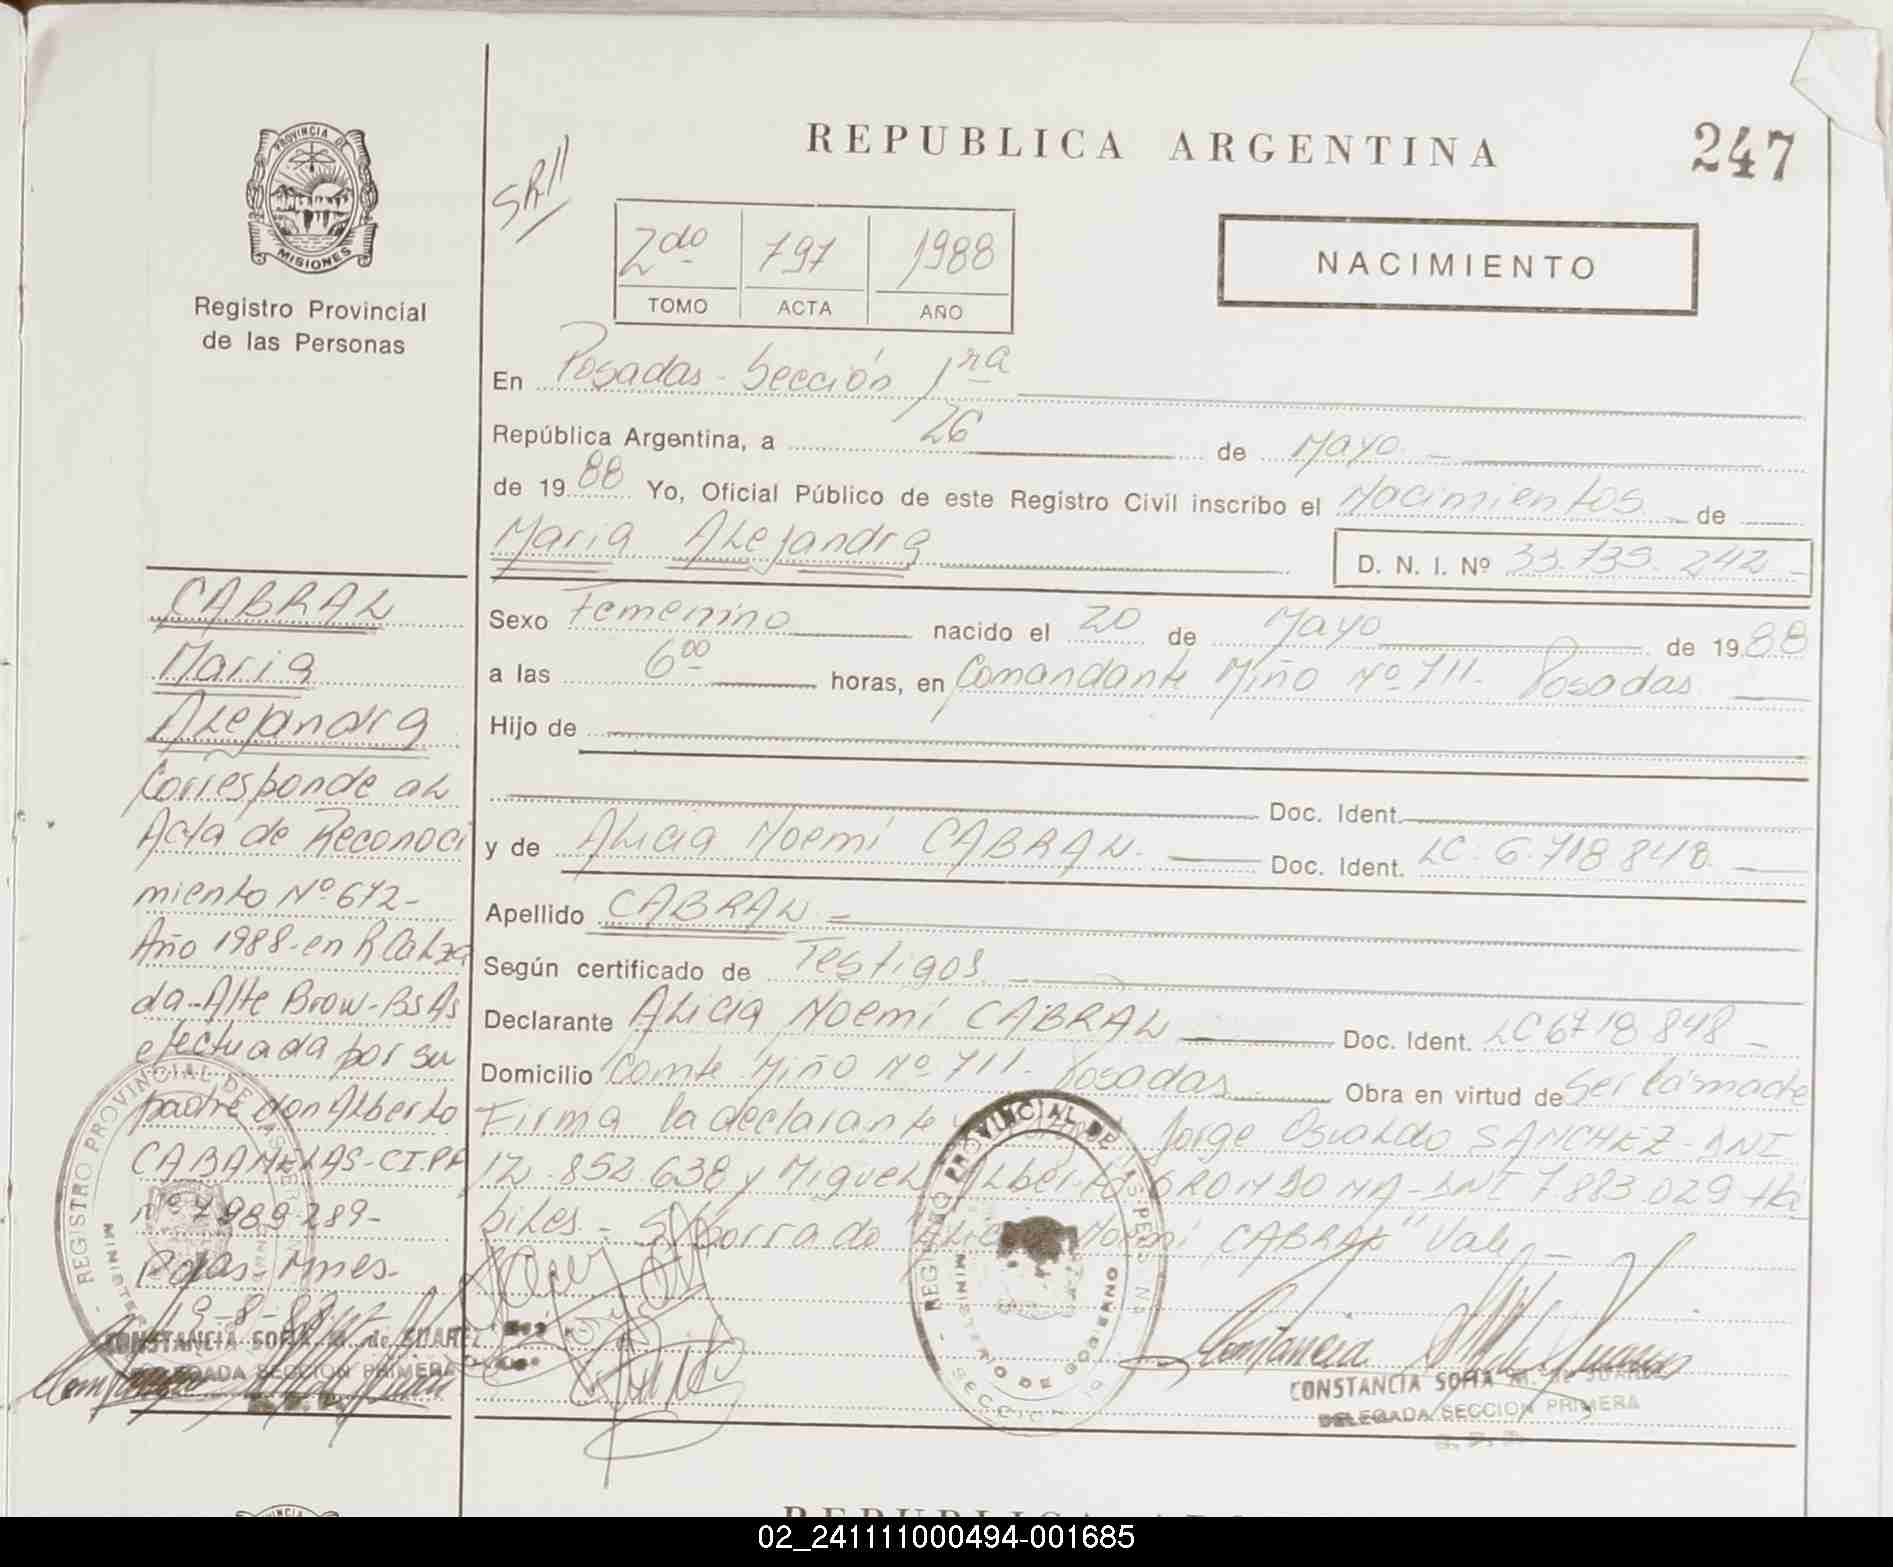 PROVINCIA DE
MISIONES
Registro Provincial
de las Personas
CABRAL
Maria
Alejandra
Corresponde al
Acta de Reconoci
miento Nº 672-
Año 1988-en R Calza
da-Alte Brow-BsAs
efectuada por su
padre don Alberto
CABAÑELAS-CI.PF
nº 7989-289-
Pdas-Mnes-
19-8-88
CONSTANCIA SOFIA M. de SUAREZ
DELEGADA SECCION PRIMERA
REPUBLICA ARGENTINA
247
SR//
2do 797 1988
TOMO ACTA AÑO
NACIMIENTO
En Posadas - Sección 1ra
República Argentina, a 26 de Mayo
de 1988 Yo, Oficial Público de este Registro Civil inscribo el Nacimientos de
Maria Alejandra D. N. I. Nº 33.735.242
Sexo Femenino nacido el 20 de Mayo de 1988
a las 6 00 horas, en Comandante Miño Nº 711. Posadas
Hijo de
Doc. Ident.
y de Alicia Noemí CABRAL. Doc. Ident. LC. 6.718848
Apellido CABRAL
Según certificado de Testigos
Declarante Alicia Noemí CABRAL Doc. Ident. LC 6718848
Domicilio Comte Miño Nº 711. Posadas Obra en virtud de Ser la madre
Firma la declarante Jorge Osvaldo SANCHEZ-DNI
12.852.638 y Miguel Alberto DNI 7.883.029 Há
biles. - S/borrado "Alicia Noemí CABRAL" Vale
REGISTRO PROVINCIAL DE
MINISTERIO DE GOBIERNO
SECCION
CONSTANCIA SOFIA M. de SUAREZ
DELEGADA SECCION PRIMERA
REPUBLICA
02_241111000494-001685